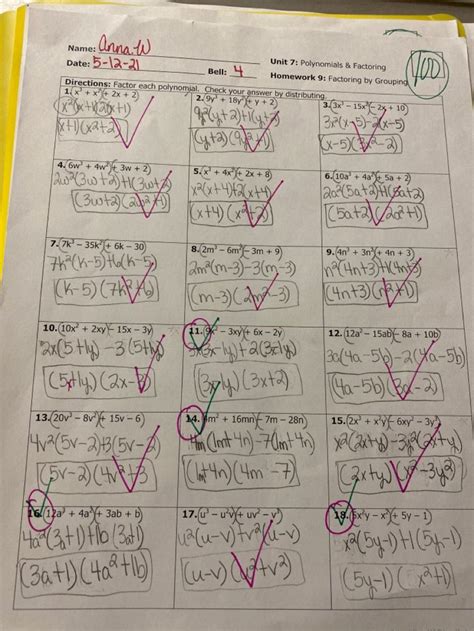 Name: Anna.W
Date: 5-12-21
Bell: 4
Unit 7: Polynomials & Factoring
Homework 9: Factoring by Grouping
100
Directions: Factor each polynomial. Check your answer by distributing.
1. (x³ + x²)(+ 2x + 2)
x²(x+1)+2(x+1)
(x+1)(x²+2)
2. (9y³ + 18y²)(+ y + 2)
9y²(y+2)+1(y+2)
(y+2)(9y²+1)
3. (3x³ − 15x²)(− 2x + 10)
3x²(x-5)-2(x-5)
(x-5)(3x²-2)
4. 6w³ + 4w²)(+ 3w + 2)
2w²(3w+2)+1(3w+2)
(3w+2)(2w²+1)
5. (x³ + 4x²)(+ 2x + 8)
x²(x+4)+2(x+4)
(x+4)(x²+2)
6. (10a³ + 4a²)(+ 5a + 2)
2a²(5a+2)+1(5a+2)
(5a+2)(2a²+1)
7. (7k³ − 35k²)(+ 6k − 30)
7k²(k-5)+6(k-5)
(k-5)(7k²+6)
8. (2m³ − 6m²)(− 3m + 9)
2m²(m-3)-3(m-3)
(m-3)(2m²-3)
9. (4n³ + 3n²)(+ 4n + 3)
n²(4n+3)+1(4n+3)
(4n+3)(n²+1)
10. (10x² + 2xy)(− 15x − 3y)
2x(5x+1y)-3(5x+1y)
(5x+1y)(2x-3)
11. (9x² − 3xy)(+ 6x − 2y)
3x(3x-1y)+2(3x-1y)
(3x-1y)(3x+2)
12. (12a² − 15ab)(− 8a + 10b)
3a(4a-5b)-2(4a-5b)
(4a-5b)(3a-2)
13. (20v³ − 8v²)(+ 15v − 6)
4v²(5v-2)+3(5v-2)
(5v-2)(4v²+3
14. (4m² + 16mn)(− 7m − 28n)
4m(1m+4n)-7(1m+4n)
(1m+4n)(4m-7)
15. (2x³ + x²y)(− 6xy² − 3y³)
x²(2x+y)-3y²(2x+y)
(2x+y)(x²-3y²)
16. (12a³ + 4a²)(+ 3ab + b)
4a²(3a+1)+1b(3a+1)
(3a+1)(4a²+1b)
17. (u³ − u²v)(+ uv² − v³)
u²(u-v)+v²(u-v)
(u-v)(u²+v²)
18. (5x²y − x²)(+ 5y − 1)
x²(5y-1)+1(5y-1)
(5y-1)(x²+1)